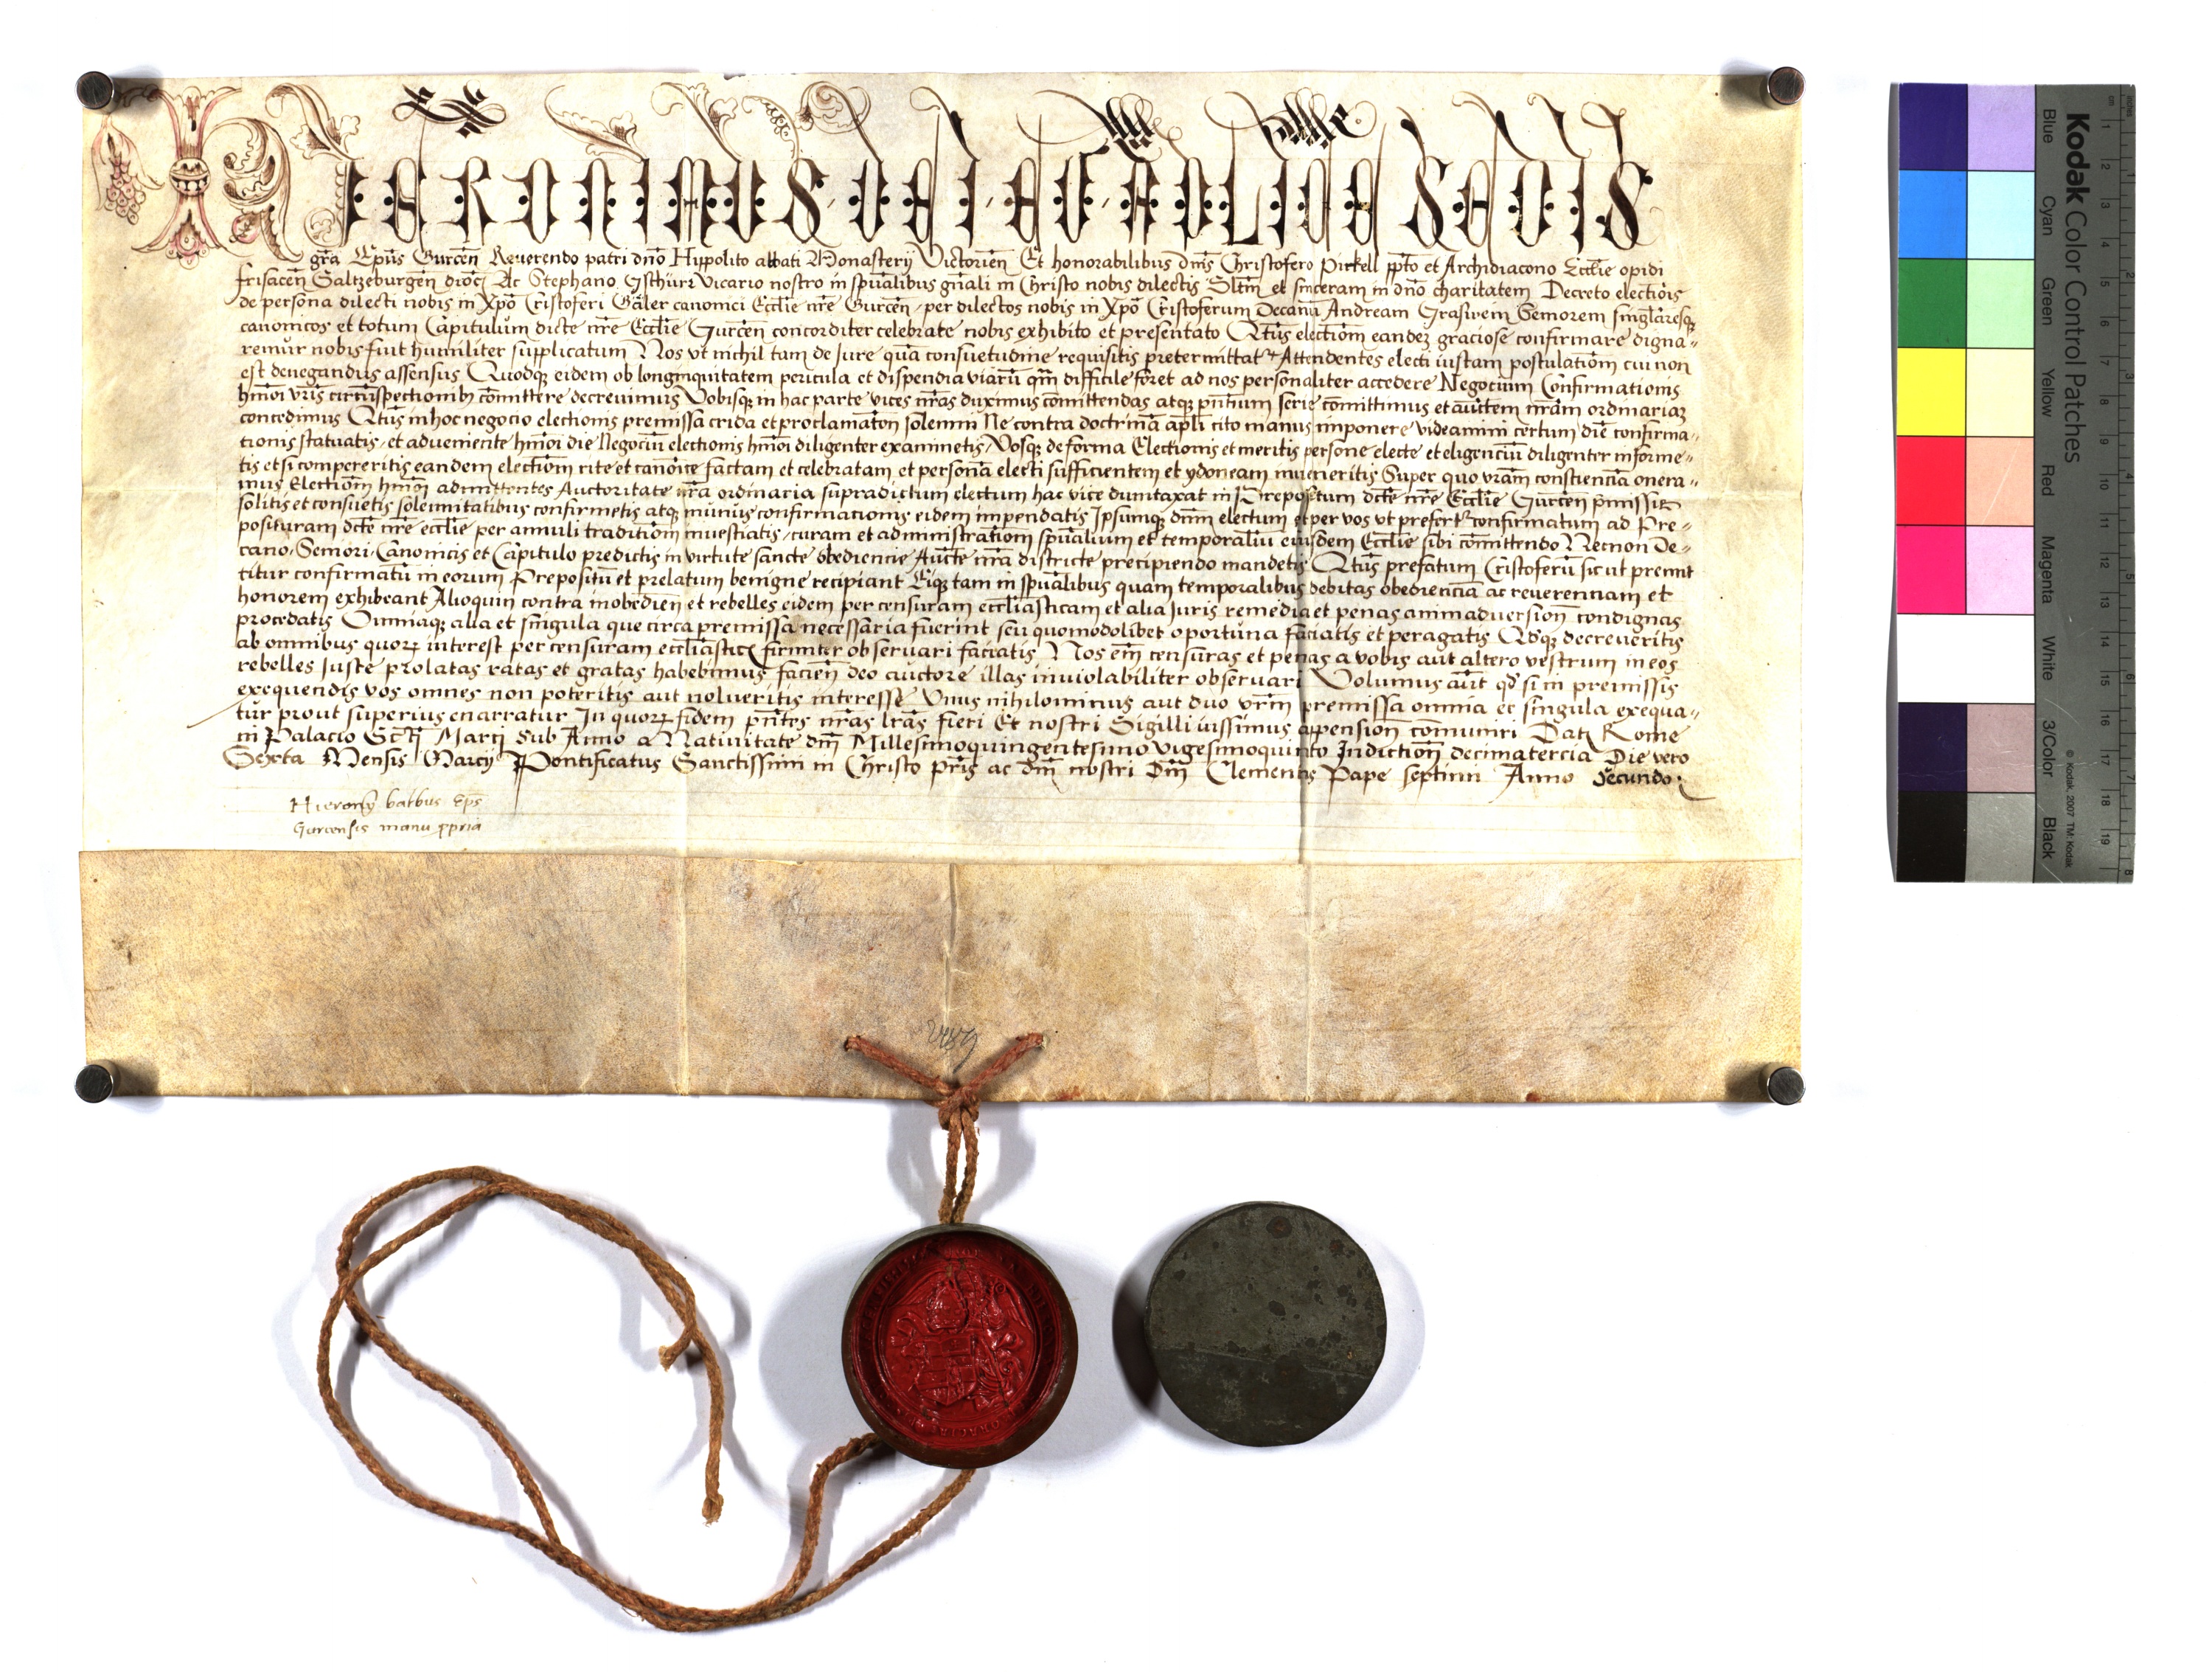 HIERONIMUS · DEI · ET · APLICE SEDIS
gr̃a Ep̃us Gurceñ Reverendo patri dño Hyppolito abbati Monasterij Victorieñ Et honorabilibus dñis Christofero Pirkell pp̃to et Archidiacono Eccl̃ie opidi
frisaceñ Saltzeburgeñ dioc̃ Ac Stephano Vicario nostro in sp̃ualibus gñali in Christo nobis dilectis Sl̃tm et sinceram in dño charitatem Decreto electiõis
de persona dilecti nobis in Xpõ Cristoferi Gäler canonici Eccl̃ie nr̃e Gurceñ / per dilectos nobis in Xpõ Cristoferum Decanũ Andream Graswein Seniorem singl̃aresq
canonicos et totum Capitulum dicte nr̃e Eccl̃ie Gurceñ concorditer celebrate nobis exhibito et presentato Qt̃us electiõm eandez graciose confirmare digna-
remur nobis fuit humiliter supplicatum Nos vt nichil tam de Jure quã consuetudine requisitis pretermittat Attendentes electi iustam postulatiõm cui non
est denegandus assensus Quodq eidem ob longinquitatem pericula et dispendia viarũ qm̃ difficile foret ad nos personaliter accedere Negocium Confirmationis
hm̃oi vr̃is circũspectionib cõmittere decrevimus Vobisq in hac parte vices nr̃as duximus cõmittendas atq pñtium serie cõmittimus et auctem nr̃am ordinariaz
concedimus Qt̃us in hoc negocio electionis premissa crida et proclamatõn solemni Ne contra doctrinã apl̃i cito manus imponere videamini certum diẽ confirma-
tionis statuatis / et adveniente hm̃oi die Negociũ electionis hm̃oi diligenter examinetis / Vosq de forma Electionis et meritis persone electe et eligenciũ diligenter informe-
tis et si compereritis eandem electiõm rite et canoĩce factam et celebratam et personã electi sufficientem et ydoneam inveneritis Super quo vr̃am consciencia onera-
mus Electiõm hm̃oi admittentes Auctoritate nr̃a ordinaria supradictum electum hac vice dumtaxat in Prepositum dc̃te nr̃e Eccl̃ie Gurceñ p̃missis
solitis et consuetis solemnitatibus confirmetis atq munus confirmationis eidem impendatis Ipsumq dñm electum et per vos vt prefert confirmatum ad Pre-
posituram dc̃te nr̃e eccl̃ie per annuli traditiõm investiatis / curam et administratiõm sp̃ualium et temporaliũ eiusdem Eccl̃ie sibi cõmittendo Necnon De-
cano / Seniori / Canonicis et Capitulo predictis in virtute sancte obediencie Auct̃e nr̃a districte precipiendo mandetis Qt̃us prefatum Cristoferũ sic ut premit
titur confirmatũ in eorum Prepositũ et prelatum benigne recipiant Eiq tam in sp̃ualibus quam temporalibus debitas obedienciã ac reverenciam et
honorem exhibeant Alioquin contra inobedieñ et rebelles eidem per censuram eccl̃iasticam et alia Juris remedia et penas animadversioñ condignas
procedatis Omniaq alia et singula que circa premissa necessaria fuerint seu quomodolibet oportuna faciatis et peragatis Qdq decreveritis
ab omnibus quorum interest per censuram eccl̃iastic firmiter observari faciatis Nos em̃ censuras et penas a vobis aut altero vestrum in eos
rebelles Juste prolatas ratas et gratas habebimus / facieñ deo auctore illas inviolabiliter observari Volumus aut̃ qd̃ si in premissis
exequendis vos omnes non poteritis aut nolueritis interesse Vnus nihilominus aut duo vr̃m premissa omnia et singula exequa-
tur prout superius enarratur In quorum fidem pñtes nr̃as lr̃as fieri Et nostri Sigilli iussimus appensioñ cõmuniri Dat Rome
in Palacio Sc̃ti Marci Sub Anno a Nativitate dñi Millesimoquingentesimo vigesimoquinto Indictioñ decimatercia Die vero
Sexta Mensis Marcij Pontificatus Sanctissimi in Christo pr̃is ac dñi nostri Dñi Clementis Pape septimi Anno Secundo
Hierony balbus Ep̃s
Gurcensis manu ppria
Kodak Color Control Patches
Blue Cyan Green Yellow Red Magenta White 3/Color Black
© Kodak, 2007 TM: Kodak
cm 1 2 3 4 5 6 7 8 9 10 11 12 13 14 15 16 17 18 19
inches 1 2 3 4 5 6 7 8